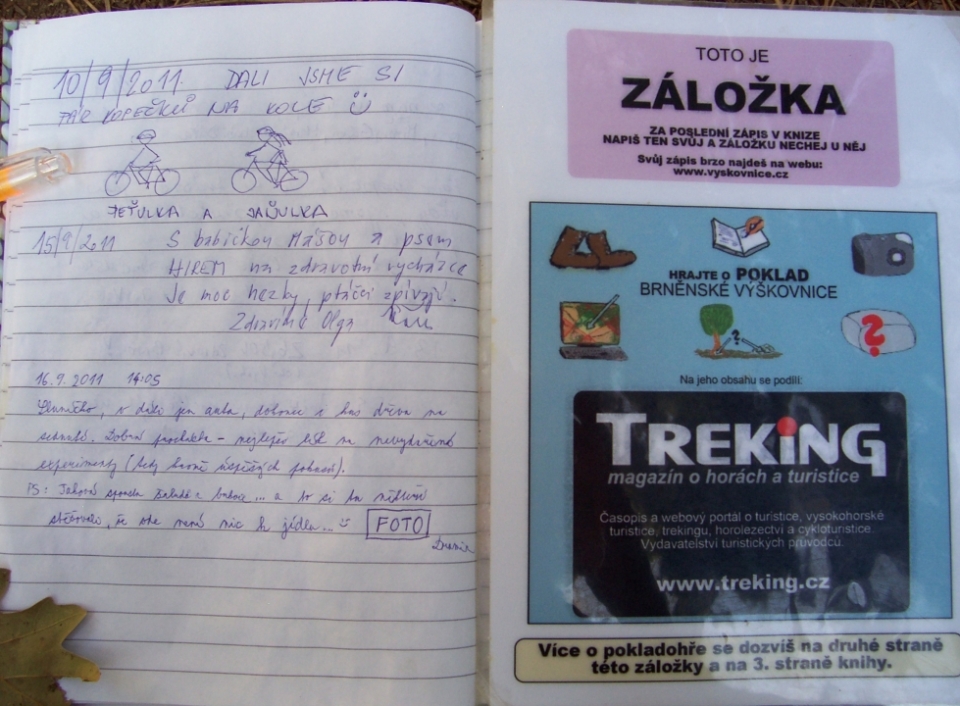 10/9/2011 DALI JSME SI
PÁR KOPEČKŮ NA KOLE
PEŤULKA A JAŮULKA
15/9/2011 S babičkou Mášou a psem
HIREM na zdravotní vycházce
Je moc hezky, ptáčci zpívají.
Zdravíme Olga
16.9.2011 14:05
Sluníčko, v dáli jen auta, dokonce i kus dřeva na
sednutí. Dobrá procházka - nejlepší lék na nevydařené
experimenty (tedy kromě úspěšných pokusů).
PS: Jaková spousta žaludů a bukvic ... a to si tu někteří
stěžovali, že zde není nic k jídlu...
FOTO
TOTO JE
ZÁLOŽKA
ZA POSLEDNÍ ZÁPIS V KNIZE
NAPIŠ TEN SVŮJ A ZÁLOŽKU NECHEJ U NĚJ
Svůj zápis brzo najdeš na webu:
www.vyskovnice.cz
HRAJTE O POKLAD
BRNĚNSKÉ VÝŠKOVNICE
Na jeho obsahu se podílí:
TREKiNG
magazín o horách a turistice
Časopis a webový portál o turistice, vysokohorské
turistice, trekingu, horolezectví a cykloturistice.
Vydavatelství turistických průvodců.
www.treking.cz
Více o pokladohře se dozvíš na druhé straně
této záložky a na 3. straně knihy.